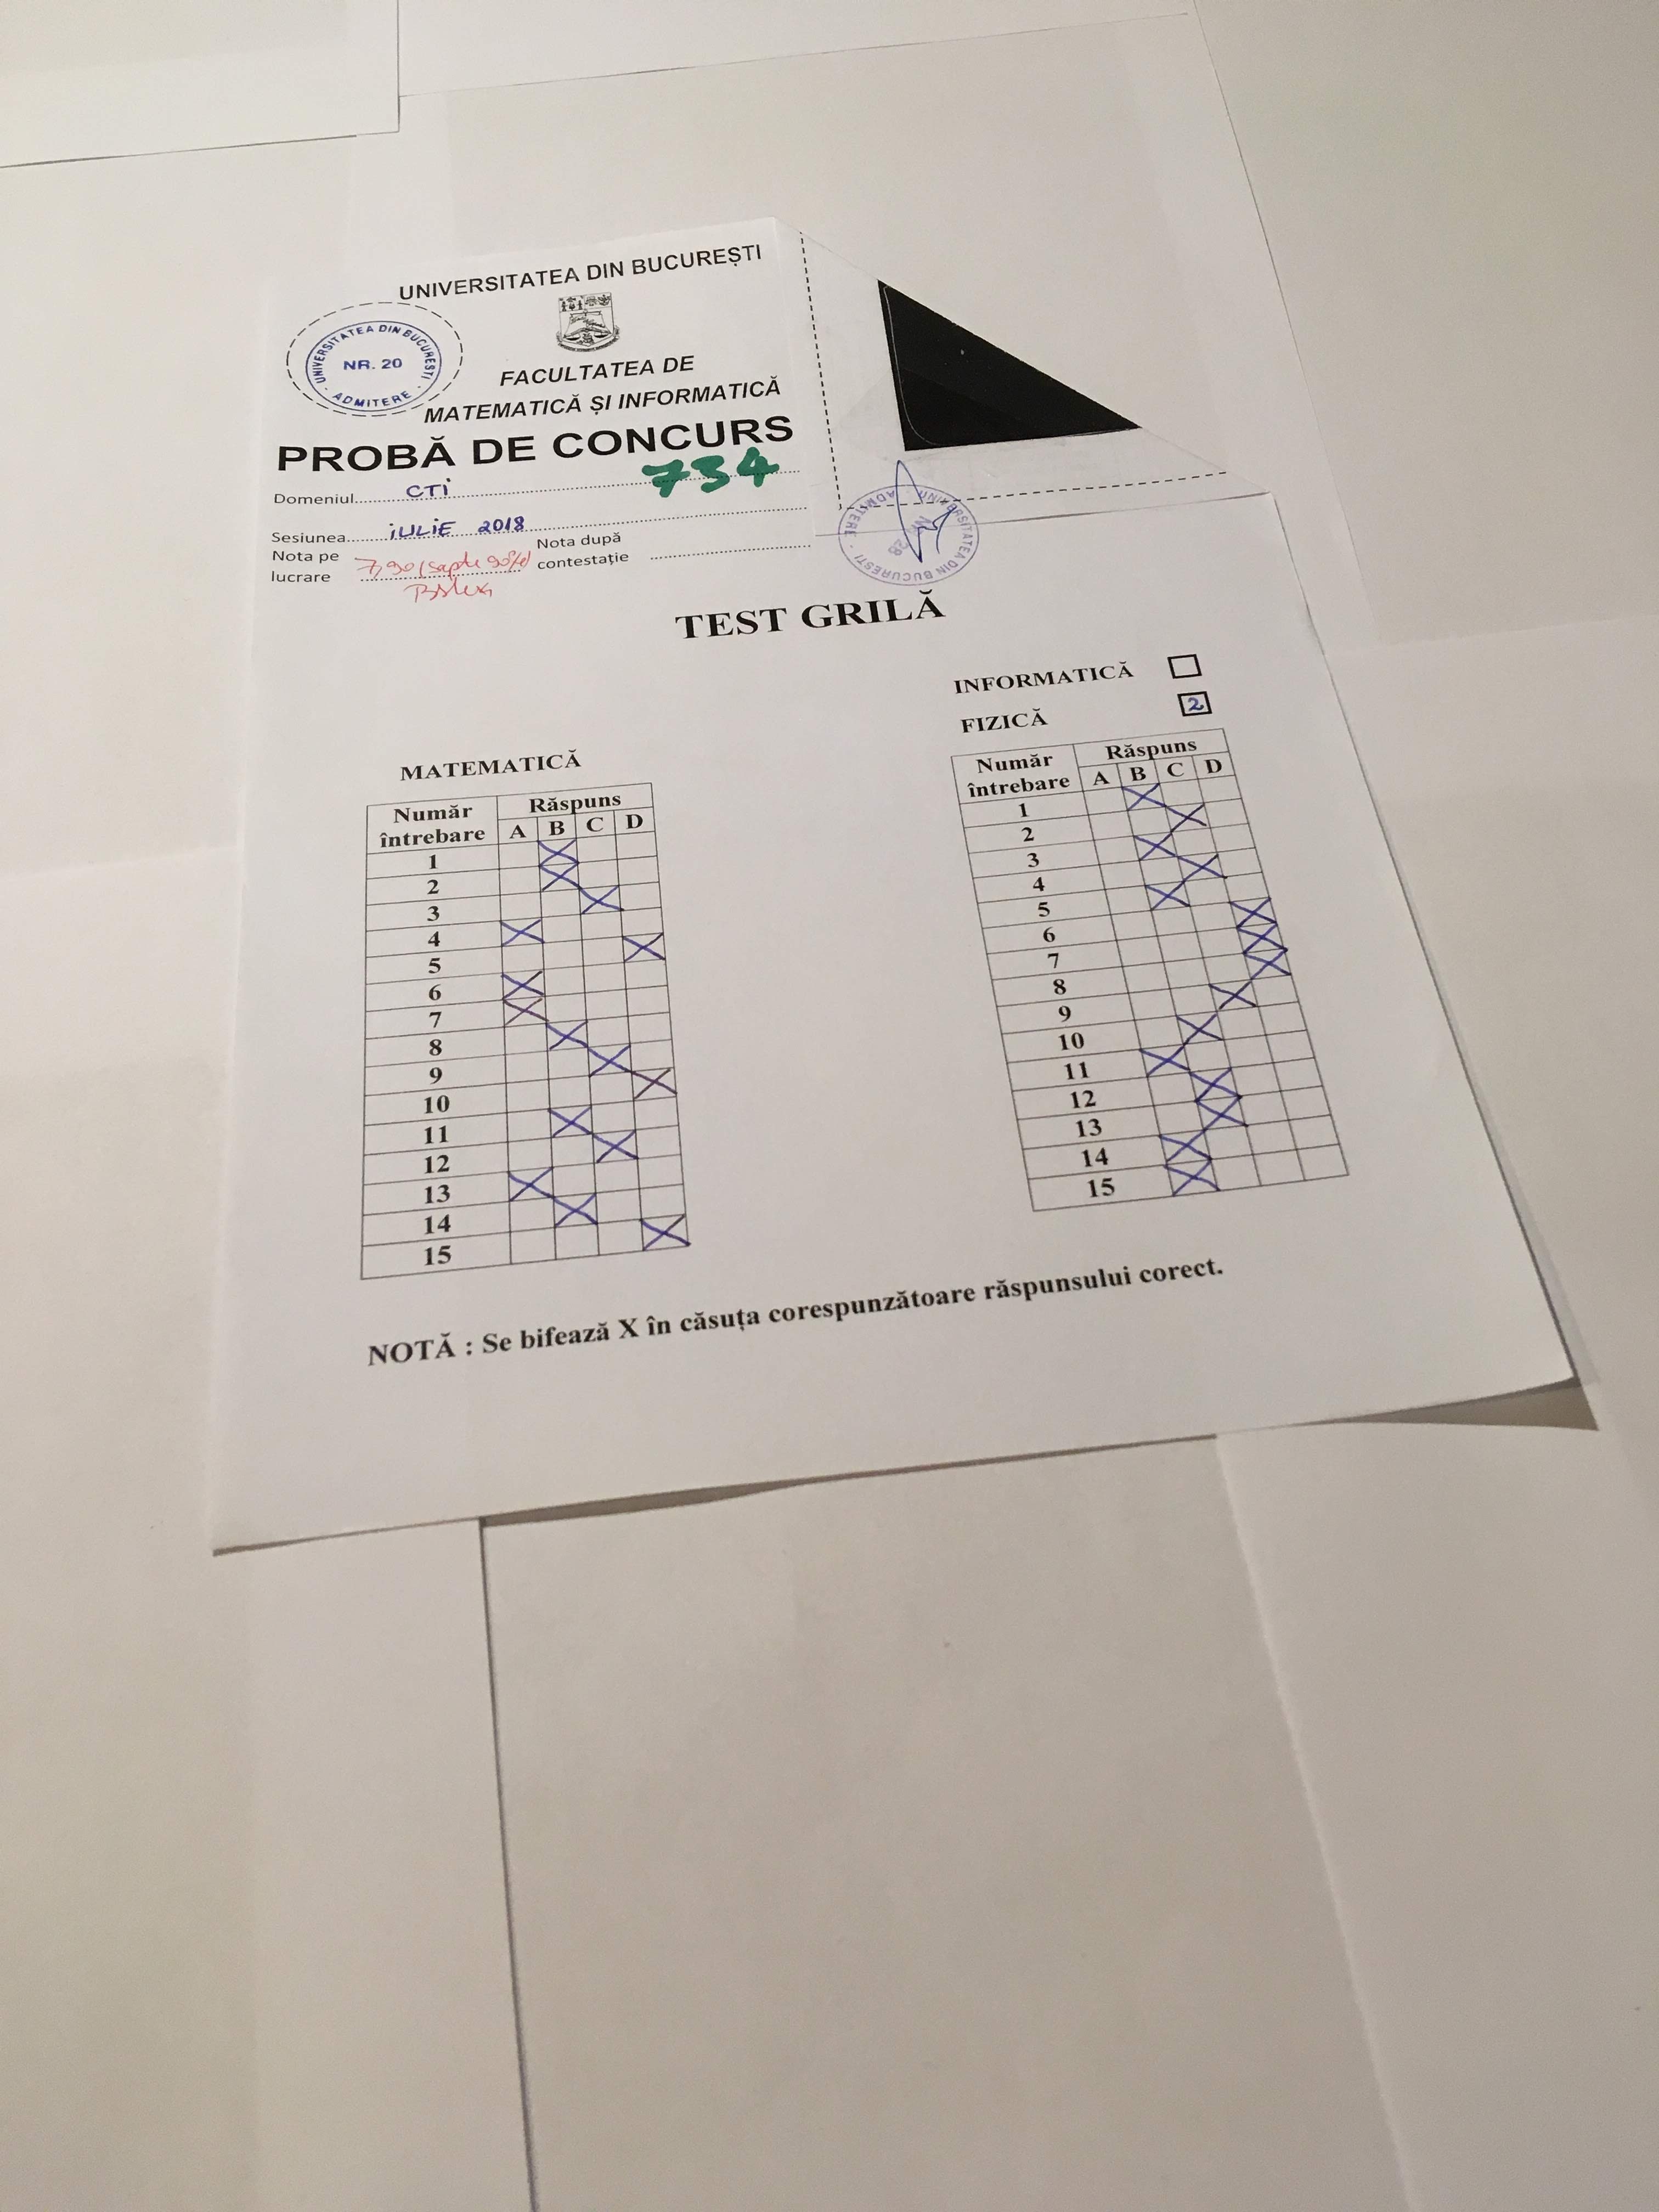 UNIVERSITATEA DIN BUCUREȘTI
UNIVERSITATEA DIN BUCUREȘTI
NR. 20
ADMITERE
FACULTATEA DE
MATEMATICĂ ȘI INFORMATICĂ
PROBĂ DE CONCURS
734
Domeniul CTI
Sesiunea IULIE 2018
Nota pe lucrare 7,90 (șapte 90%)
Nota după contestație
UNIVERSITATEA DIN BUCUREȘTI
ADMITERE
Nr. 28
TEST GRILĂ
INFORMATICĂ
FIZICĂ 2
MATEMATICĂ
Număr întrebare Răspuns
A B C D
1 X
2 X
3 X
4 X
5 X
6 X
7 X
8 X
9 X
10 X
11 X
12 X
13 X
14 X
15 X
Număr întrebare Răspuns
A B C D
1 X
2 X
3 X
4 X
5 X
6 X
7 X
8 X
9 X
10 X
11 X
12 X
13 X
14 X
15 X
NOTĂ : Se bifează X în căsuța corespunzătoare răspunsului corect.